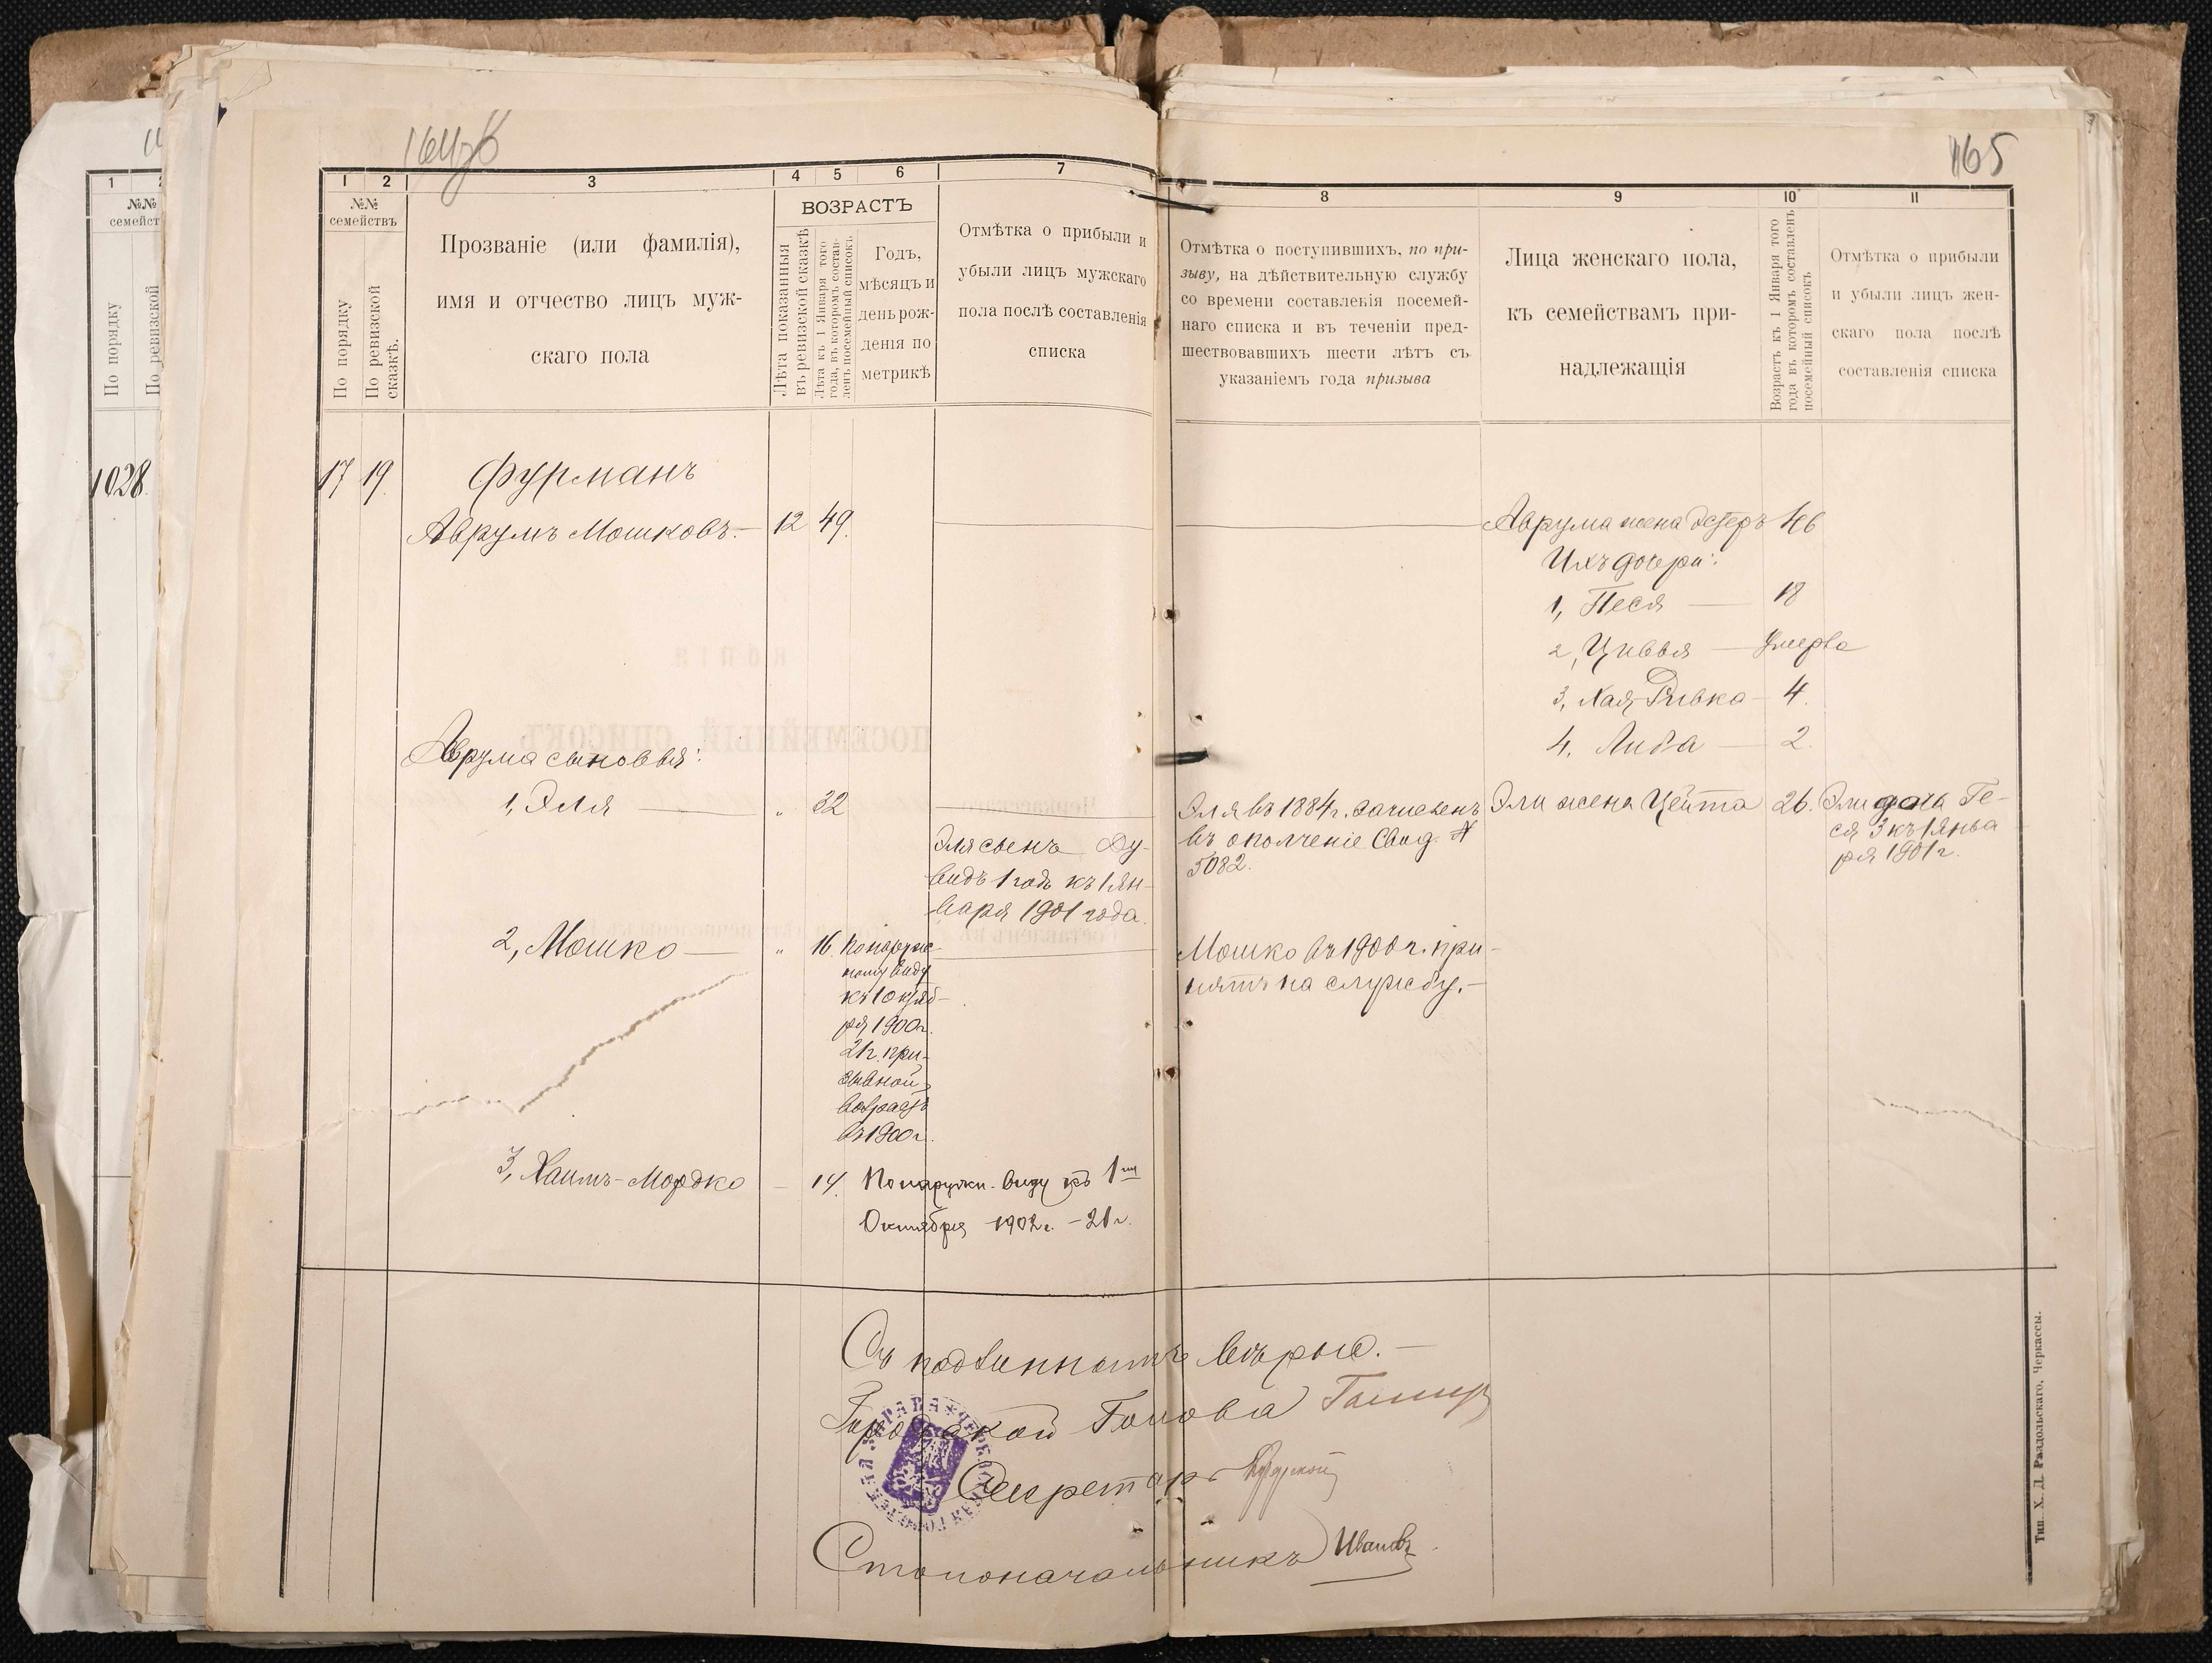 164об
165
1 2 3 4 5 6 7
№№ семействъ
По порядку
По ревизской сказкѣ.
Прозваніе (или фамилія),
имя и отчество лицъ муж-
скаго пола
ВОЗРАСТЪ
Лѣта показанныя
въ ревизской сказкѣ
Лѣта къ 1 Января того
года, въ которомъ состав-
ленъ посемейный списокъ
Годъ,
мѣсяцъ и
день рож-
денія по
метрикѣ
Отмѣтка о прибыли и
убыли лицъ мужскаго
пола послѣ составленія
списка
8 9 10 11
Отмѣтка о поступившихъ, по при-
зыву, на дѣйствительную службу
со времени составленія посемей-
наго списка и въ теченіи пред-
шествовавшихъ шести лѣтъ съ
указаніемъ года призыва
Лица женскаго пола,
къ семействамъ при-
надлежащія
Возрастъ къ 1 Января того
года въ которомъ составленъ
посемейный списокъ
Отмѣтка о прибыли
и убыли лицъ жен-
скаго пола послѣ
составленія списка
1 2
№№
семейст
По порядку
По ревизской
1028.
17 19. Фурманъ
Аврумъ Мошковъ.— 12 49.
Аврума жена Эстеръ 46
Ихъ дочери:
1, Песя — 18
2, Цивья — Умерла
3, Хая-Ривка — 4.
4, Либа — 2.
Аврума сыновья:
1, Эля — " 32
Эля сынъ Ду-
видъ 1 годъ къ 1 Ян-
варя 1901 года.
Эля въ 1884 г. зачисленъ
въ ополченіе Свид. №
5082.
Эли жена Цейта 26.
Эли дочь Ге-
ся 3 къ 1 Янва
ря 1901 г.
2, Мошко — " 16.
По наруж-
ному виду
къ 1 Октяб-
ря 1900 г.
21 г. при-
зывной
возрастъ
въ 1900 г.
Мошко въ 1900 г. при-
нятъ на службу.—
3, Хаимъ-Мордко — 14. По наружн. виду къ 1му
Октября 1902 г. – 21 г.
Съ подлиннымъ вѣрно.—
Городской Голова
Секретарь
Столоначальникъ Ивановъ
Тип. Х. Д. Раздольскаго, Черкассы.